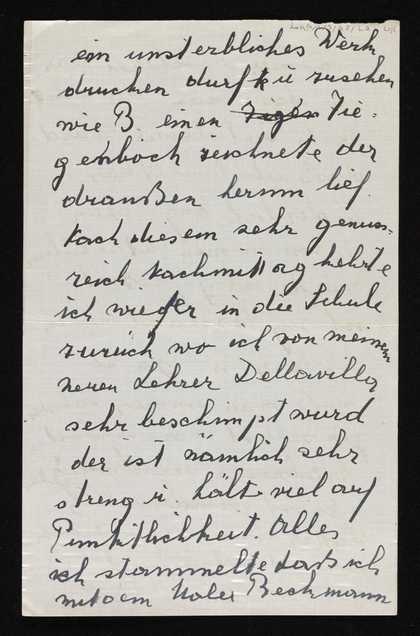 ein unsterbliches Werk
drucken durfte u zusehen
wie B. einen Zie-
genbock zeichnete der
draußen herum lief.
Nach diesem sehr genuss-
reich Nachmittag kehrte
ich wieder in die Schule
zurück wo ich von meinem
neuen Lehrer Dellavilla
sehr beschimpt wurd
der ist nämlich sehr
streng u. hält viel auf
Pünktlichkeit. Alles
ich stammelte daß ich
mit dem Maler Beckmann